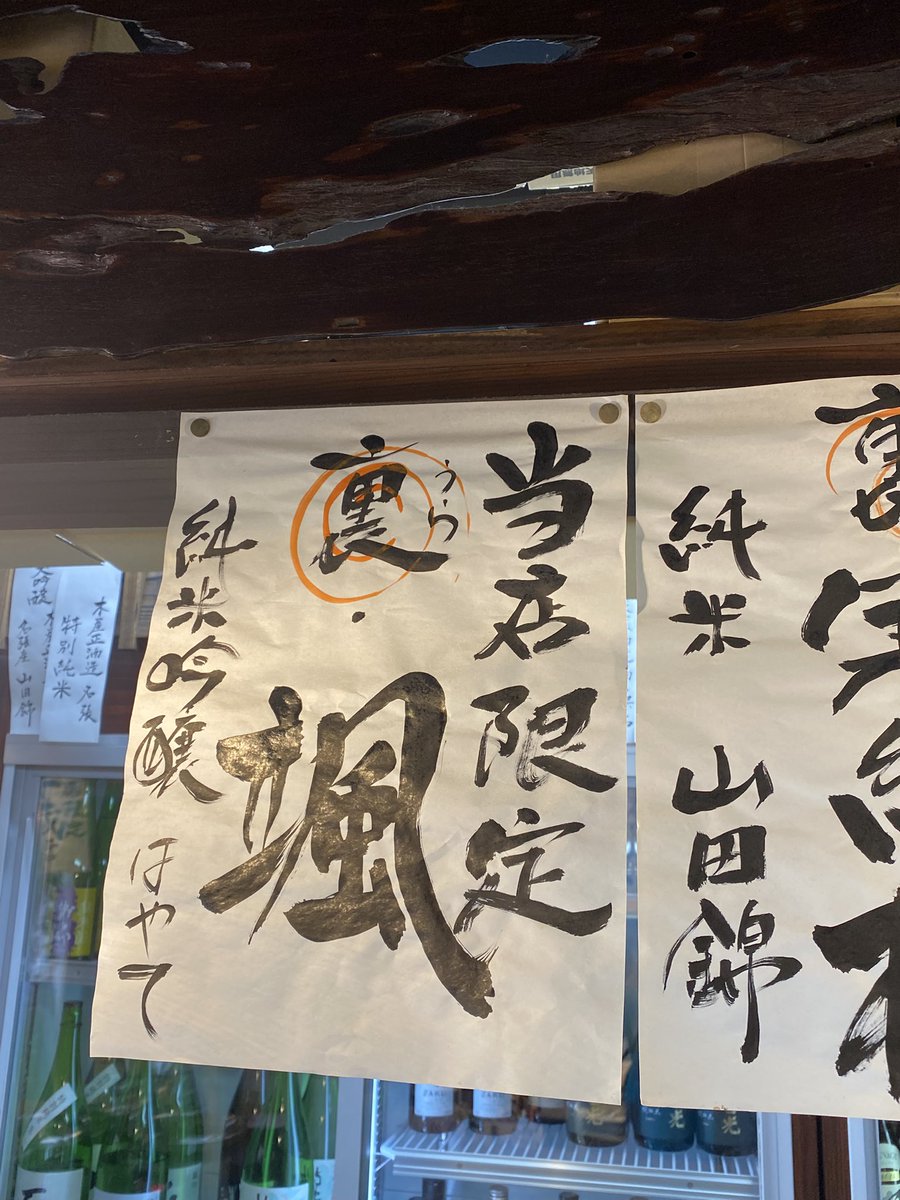 当店限定
裏・颯
うら
純米吟醸 はやて
裏
純米 山田錦
木屋正酒造 名張
特別純米
山田錦